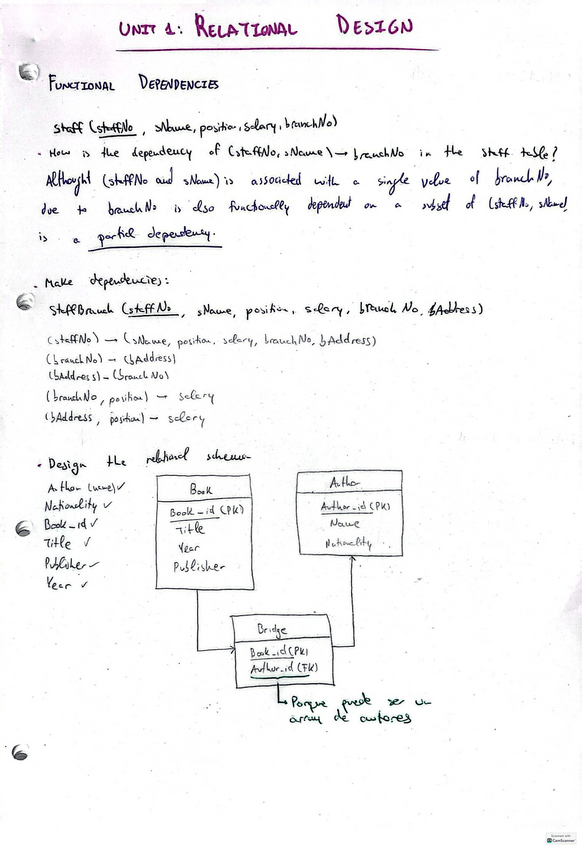 UNIT 1: RELATIONAL DESIGN
FUNCTIONAL DEPENDENCIES
Staff (staffNo, sName, position, salary, branchNo)
· How is the dependency of (staffNo, sName) → branchNo in the staff table?
Althought (staffNo and sName) is associated with a single value of branchNo,
due to branchNo is also functionally dependent on a subset of (staffNo, sName)
is a partial dependency.
· Make dependencies:
StaffBranch (staffNo, sName, position, salary, branch No, bAddress)
(staffNo) → (sName, position, salary, branchNo, bAddress)
(branchNo) → (bAddress)
(bAddress) → (branchNo)
(branchNo, position) → salary
(bAddress, position) → salary
· Design the relational schema
Author (name) ✓
Nationality ✓
Book_id ✓
Title ✓
Publisher ✓
Year ✓
Book
Book_id (PK)
Title
Year
Publisher
Author
Author_id (PK)
Name
Nationality
Bridge
Book_id (PK)
Author_id (FK)
Porque puede ser un
array de autores
Scanned with
CamScanner